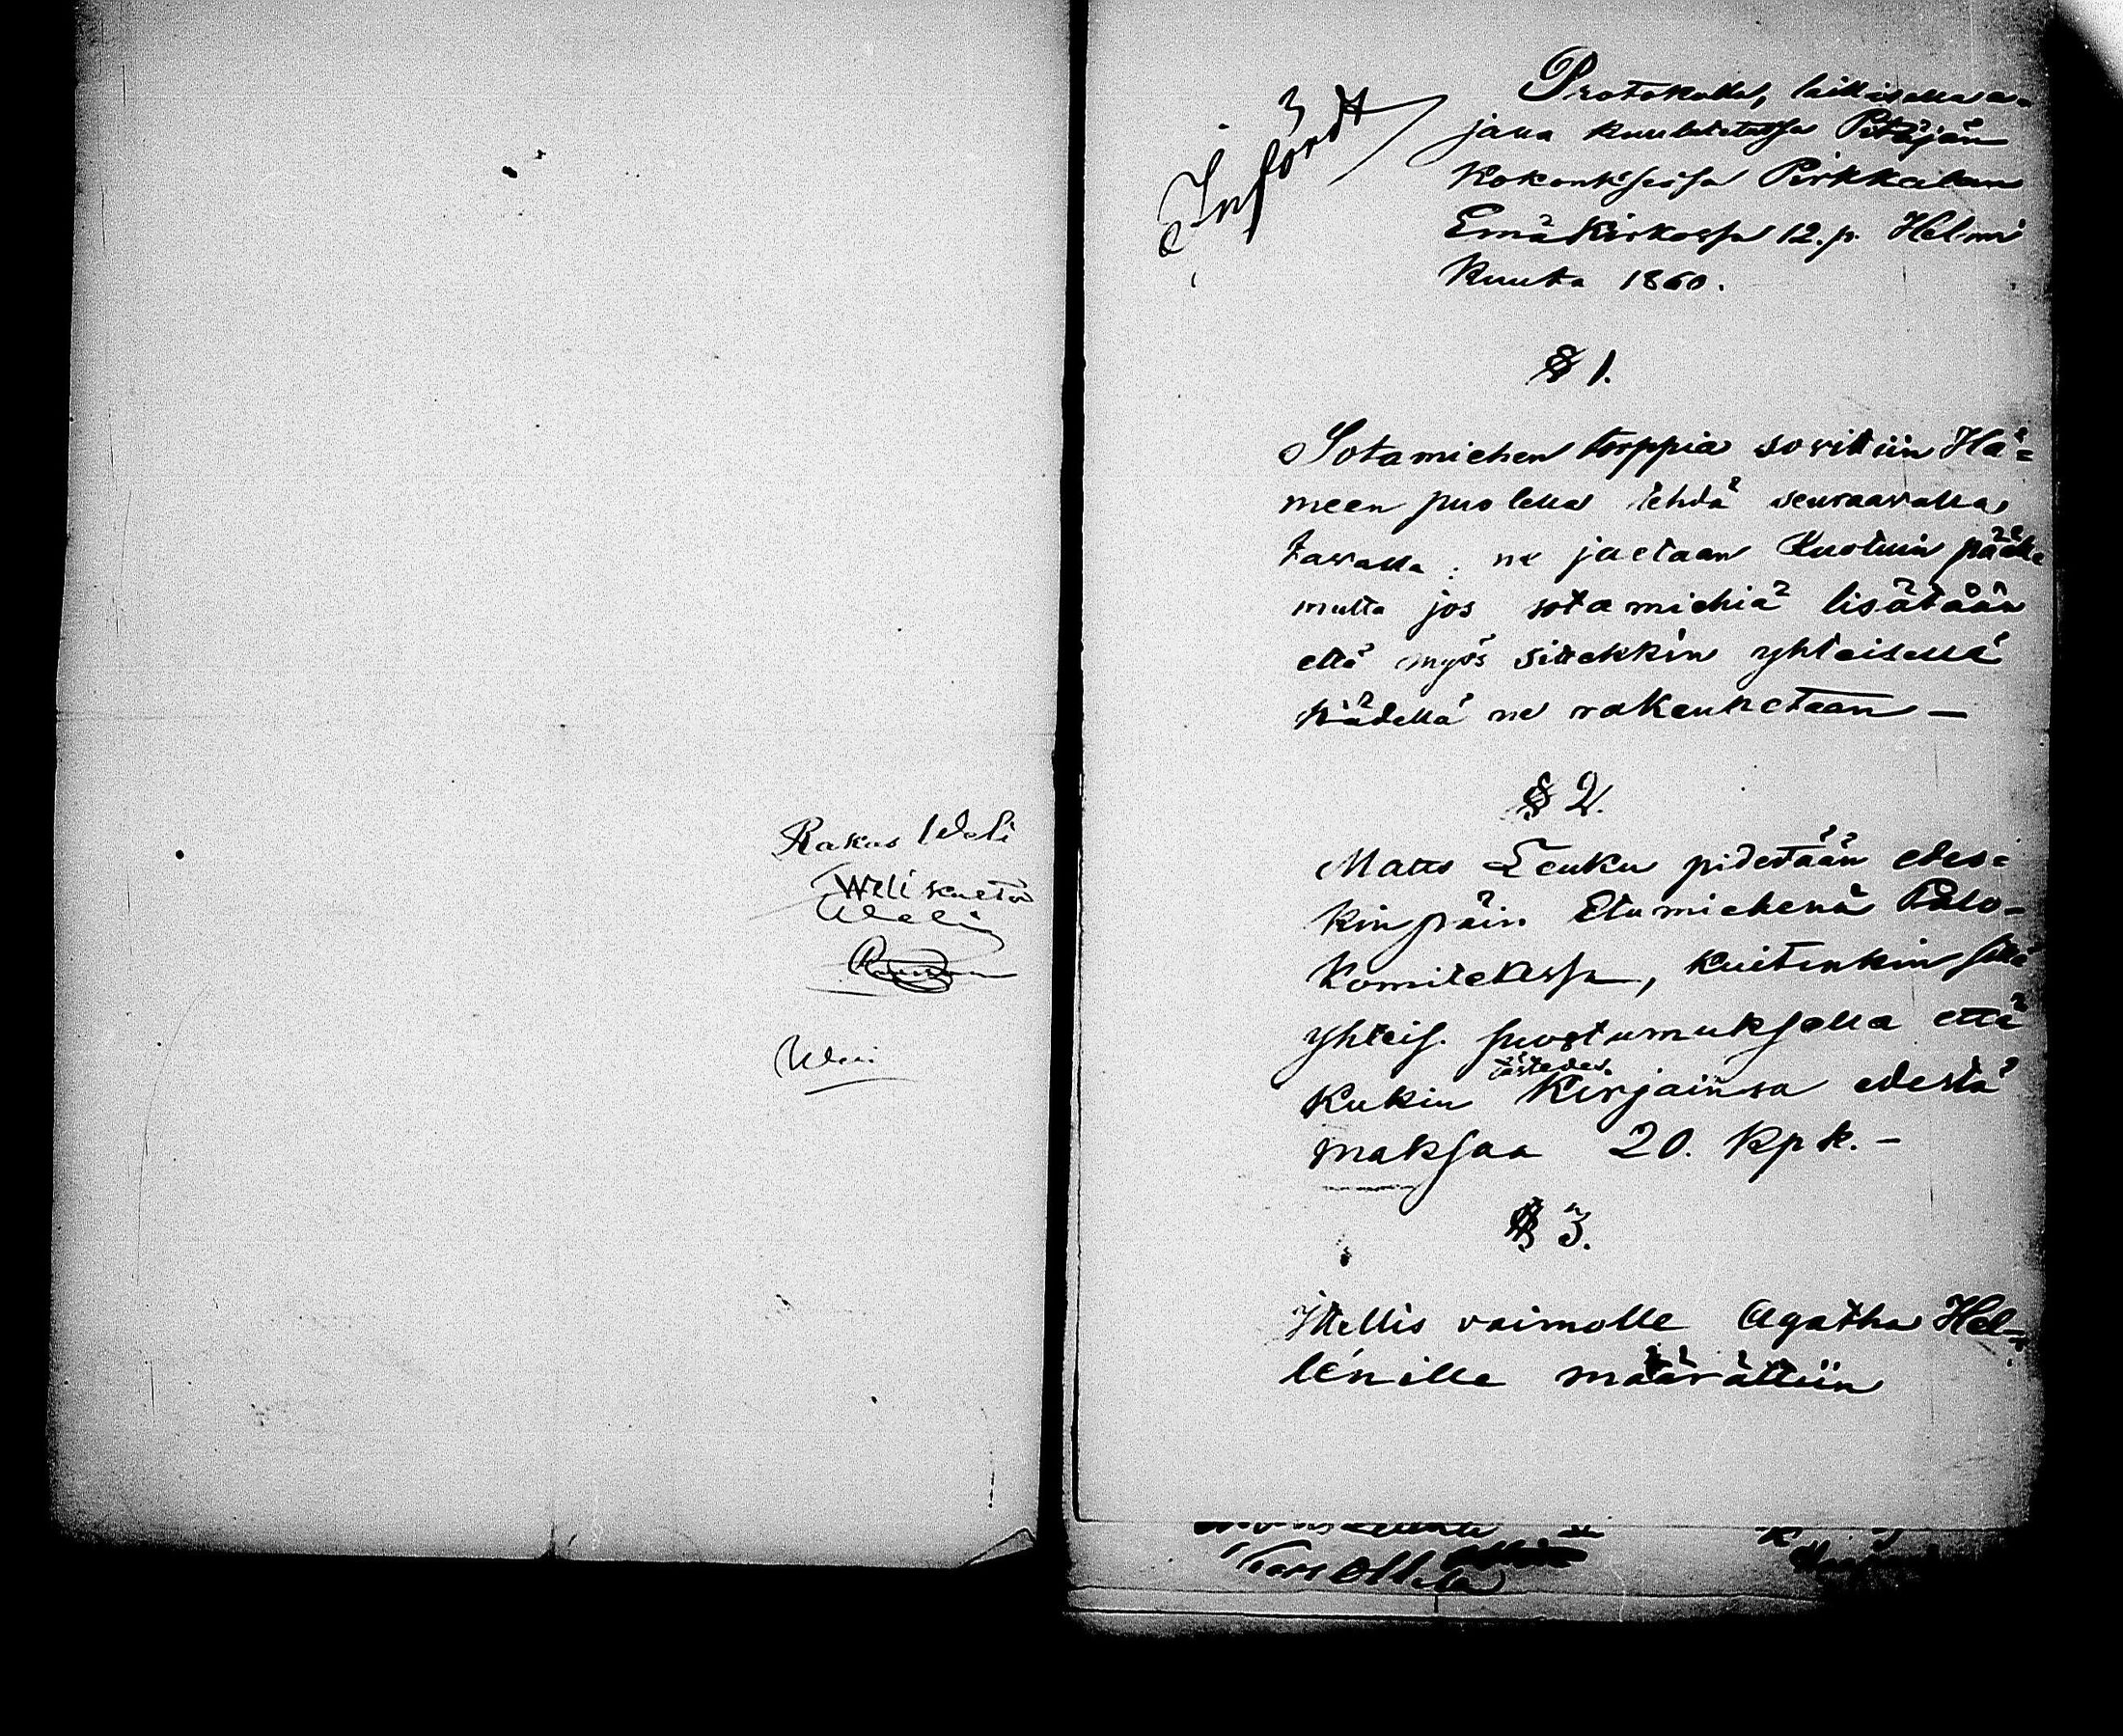 Rakas Weli
Weli kulta
Weli
Införd
Protokolla, laillisella a-
jalla kuulutetussa Pitäjän
Kokouksessa Pirkkalan
Emäkirkossa 12. p. Helmi
kuuta 1860.
§ 1.
Sotamiehen torppia sovittiin Hä=
meen puolella tehdä seuraavalla
tavalla: ne jaetaan Luotuin päälle
mutta jos sotamiehiä lisätään
että myös sittekkin yhteisellä
kädellä ne rakennetaan —
§ 2.
Matts Leuku pidetään edes=
kinpäin Etumiehenä Palo-
Komiteassa, kuitenkin sillä
yhteis. suostumuksella että
Kukin Kirjainsa edestä
maksaa 20. kpk. —
§ 3.
Ittellis vaimolle Agatha Hel-
lénille määrättiin